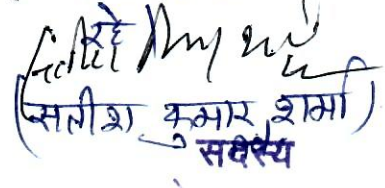 रहे
(सतीश कुमार शर्मा)
सदस्य